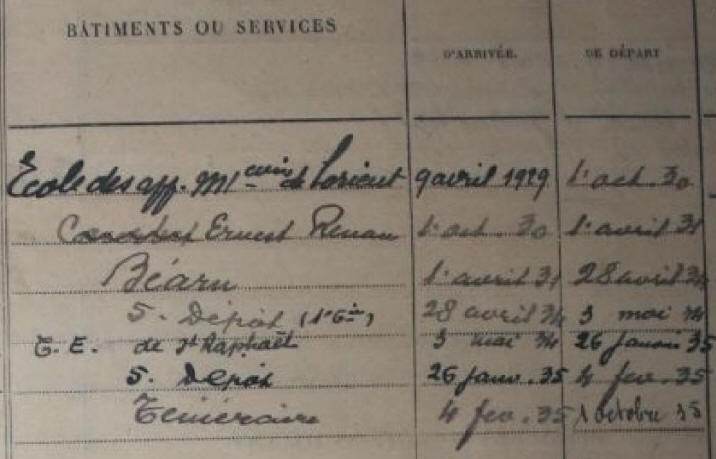 BÂTIMENTS OU SERVICES D'ARRIVÉE. DE DÉPART
Ecole des app. Mcien de Lorient 9 avril 1929 1er oct. 30
Ernest Renan 1er oct. 30 1er avril 31
Béarn 1er avril 31 28 avril 34
5. Dépôt 28 avril 34 3 mai 34
C. E. de St Raphaël 3 mai 34 26 janvier 35
5. Dépôt 26 janv. 35 4 fev. 35
Téméraire 4 fev. 35 1 octobre 35